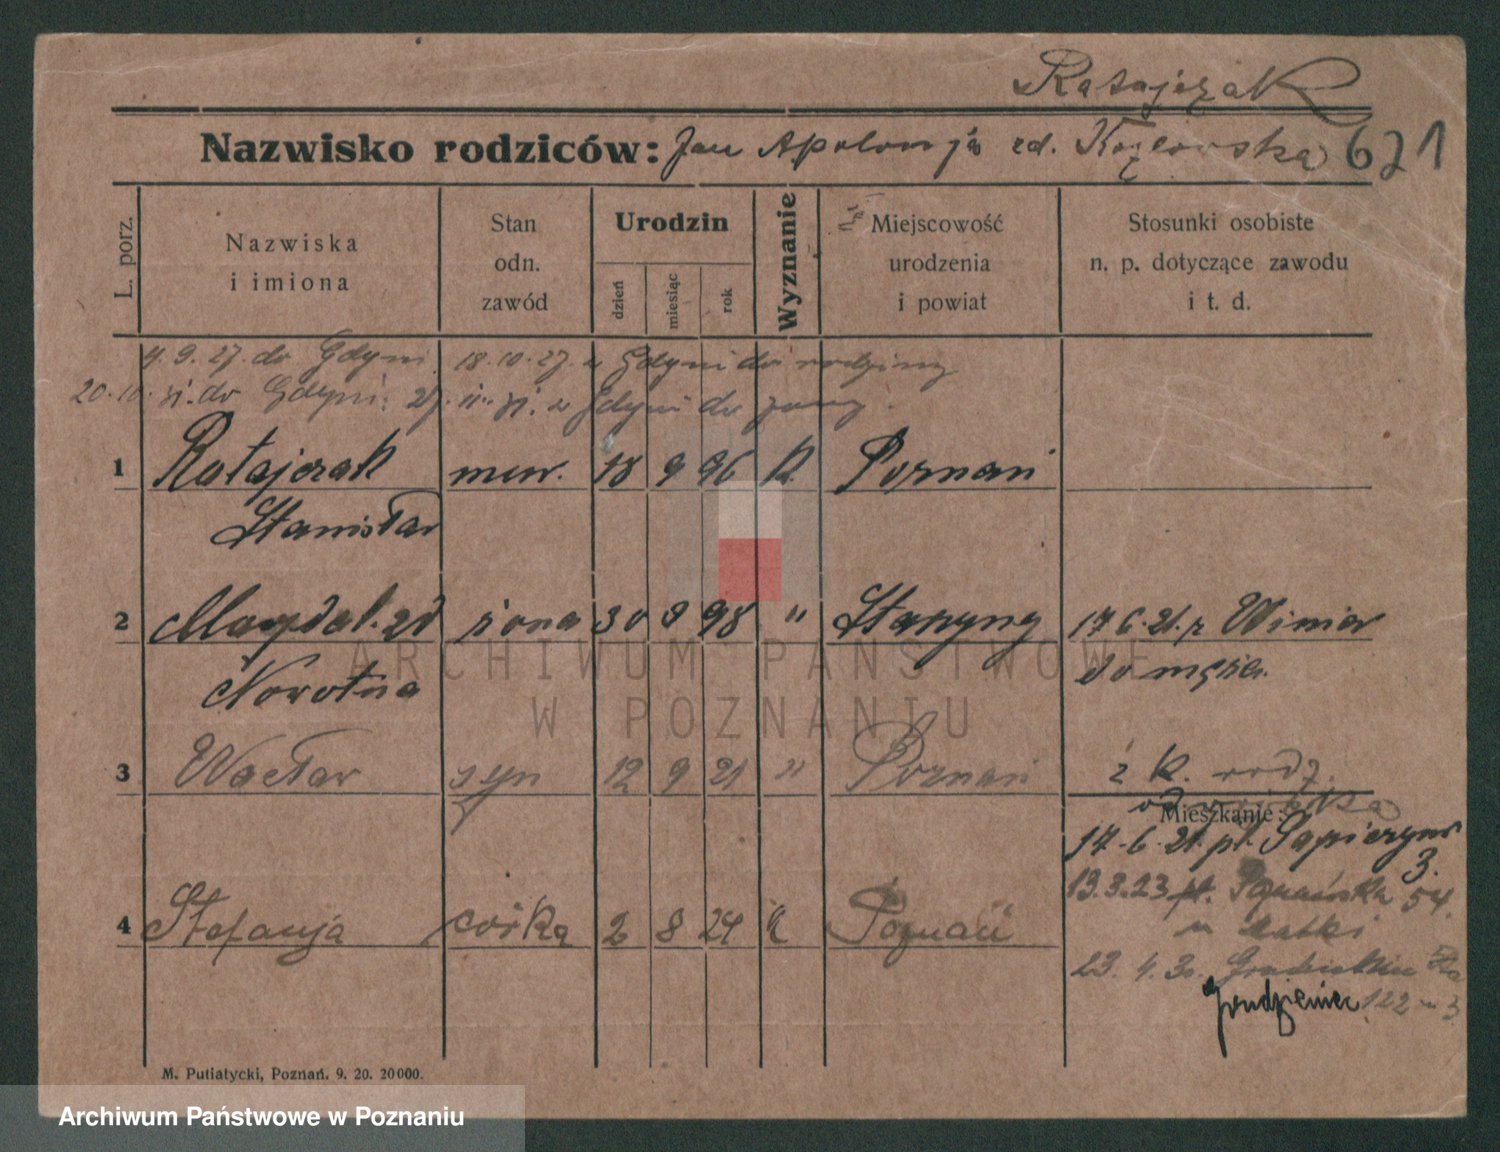 Ratajczak
Nazwisko rodziców: Jan Apolonja zd. Kozłowska 621
L. porz.
Nazwiska
i imiona
Stan
odn.
zawód
Urodzin
dzień
miesiąc
rok
Wyznanie
Miejscowość
urodzenia
i powiat
Stosunki osobiste
n. p. dotyczące zawodu
i t. d.
9.9.27. do Gdyni 18.10.27. z Gdyni do rodziny
20.10.31. do Gdyni. 27.11.31. z Gdyni do żony.
1 Ratajczak 18 9 96 k. Poznań
Stanisław
2 Magdal. zd żona 30 8 98 " 17.6.21. z Winiar
Nowotna do męża.
3 Wacław syn 12 9 21 " Poznań
z k. rodz.
Mieszkanie:
17.6.21. pl. Sapieżyński
3.
13.3.23 Poznańska 54.
u matki
4 Stefanja córka 2 8 24 k Poznań
23.4.3
Grudzieniec 122 m 3
M. Putiatycki, Poznań. 9. 20. 20000.
ARCHIWUM PAŃSTWOWE
W POZNANIU
Archiwum Państwowe w Poznaniu